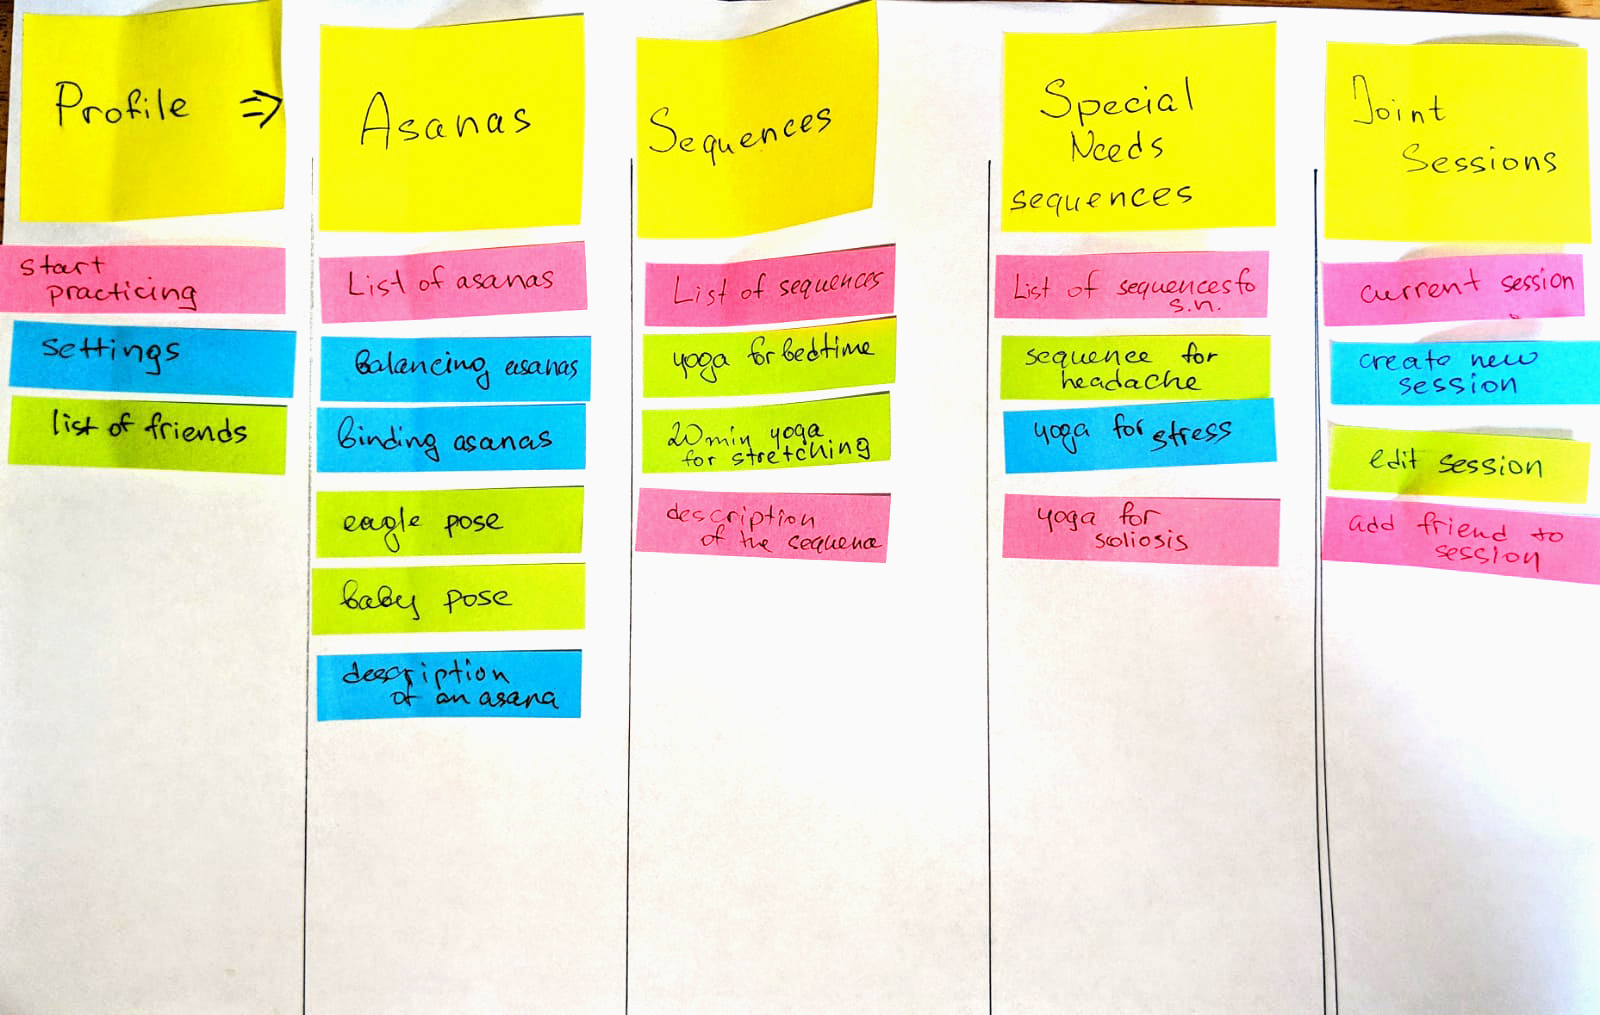 Profile ⇒
start
practicing
settings
list of friends
Asanas
List of asanas
balancing asanas
binding asanas
eagle pose
baby pose
description
of an asana
Sequences
List of sequences
yoga for bedtime
20 min yoga
for stretching
description
of the sequence
Special
Needs
sequences
List of sequences fo
s.n.
sequence for
headache
yoga for stress
yoga for
scoliosis
Joint
Sessions
current session
create new
session
edit session
add friend to
session